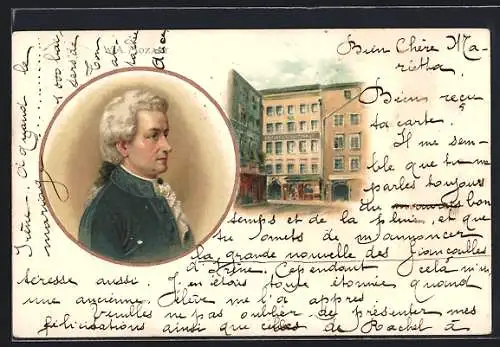 W. A. MOZART
Bien Chère Ma-
rietha,
Bien reçu
ta carte.
Il me sem-
ble que tu me
parles toujours
du bon
temps et de la pluie, et que
tu omets de m'annoncer
la grande nouvelle des fiançailles
d'Irène. Cependant cela m'in-
téresse aussi. J'en étais toute étonnée quand
une ancienne élève me l'a appris
Veuilles ne pas oublier de présenter mes
félicitations ainsi que celles de Rachel à
Irène. A quand le
mariage
1000 bai-
sers de
Ton